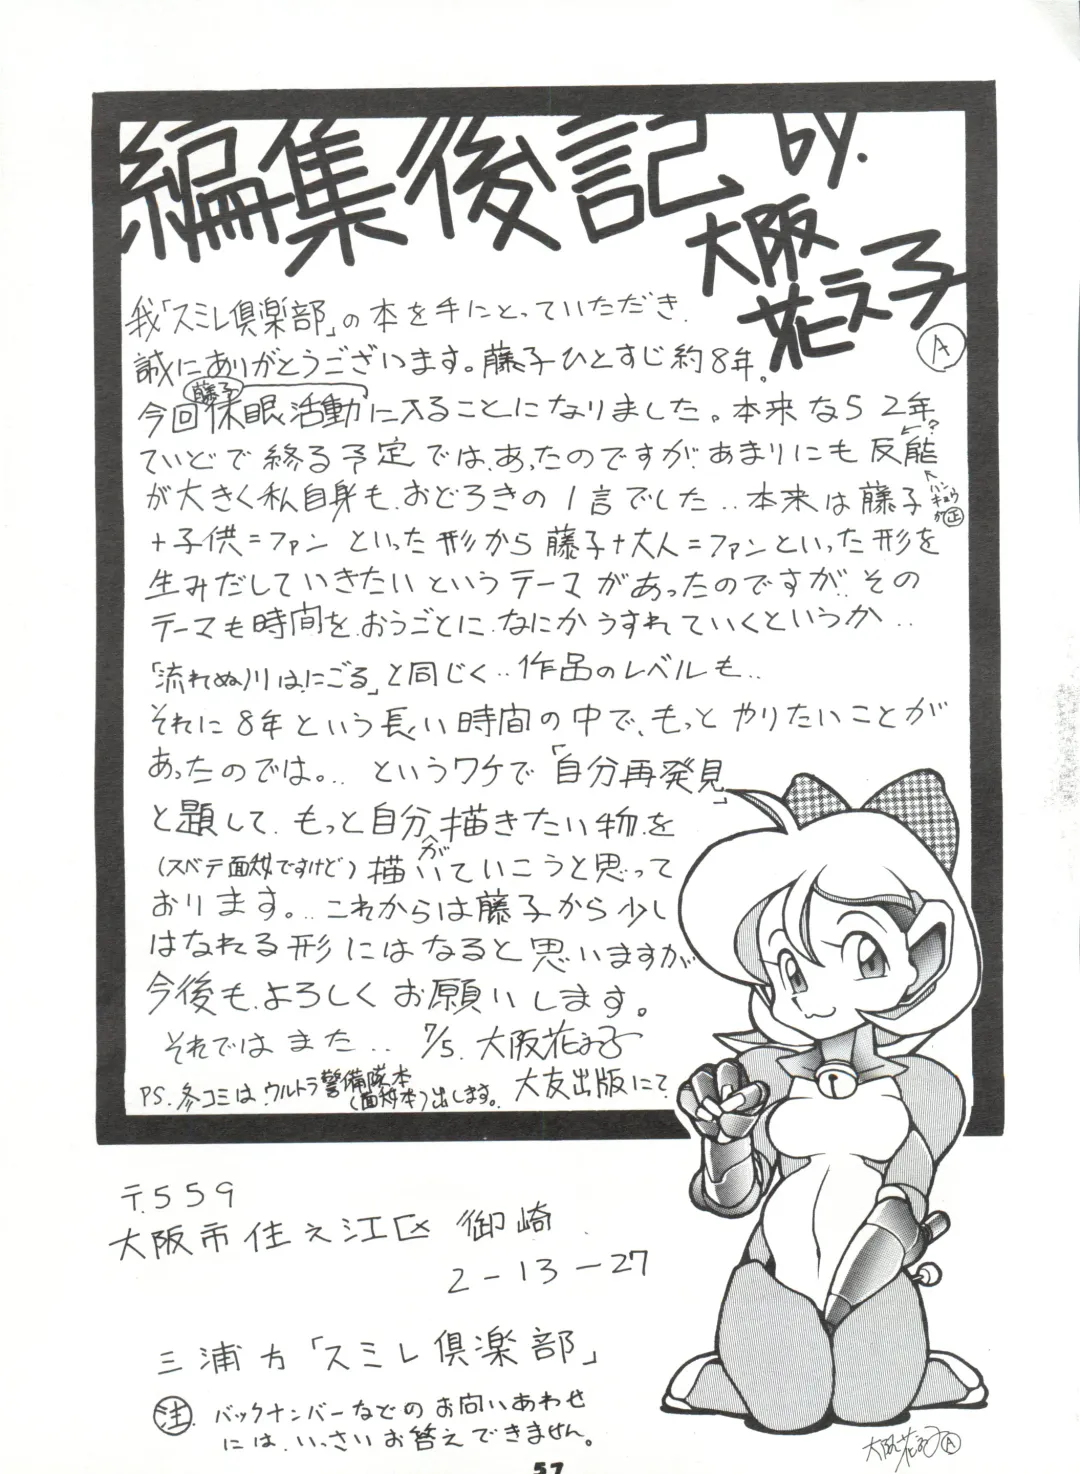 編集後記 by.
大阪
花え子
Ⓐ
我「スミレ倶楽部」の本を手にとっていただき.
誠にありがとうございます。藤子ひとすじ約8年。
藤子
今回休眠活動に入ることになりました。本来なら2年
←?
ていどで終る予定では、あったのですが、あまりにも反能
↑ハンキョウが㊣
が大きく私自身も、おどろきの1言でした.. 本来は藤子
+子供=ファン といった形から 藤子+大人=ファンといった形を
生みだしていきたいというテーマがあったのですが.. その
テーマも時間を、おうごとに、なにかうすれていくというか..
「流れぬ川は、にごる」と同じく.. 作品のレベルも..
それに8年という長い時間の中で、もっとやりたいことが
あったのでは。.. というワケで「自分再発見」
と題して、もっと自分が描きたい物を
(スベテ面ですけど) 描いていこうと思って
おります。.. これからは藤子から少し
はなれる形にはなると思いますが
今後も、よろしくお願いします。
それではまた.. 7/5. 大阪花え子
大友出版にて
PS. 冬コミは、ウルトラ警備隊本
(面本)出します。
〒.559
大阪市住之江区 御崎
2-13-27
三浦方「スミレ倶楽部」
㊟. バックナンバーなどのお問いあわせ
には、いっさいお答えできません。
大阪花え子Ⓐ
57